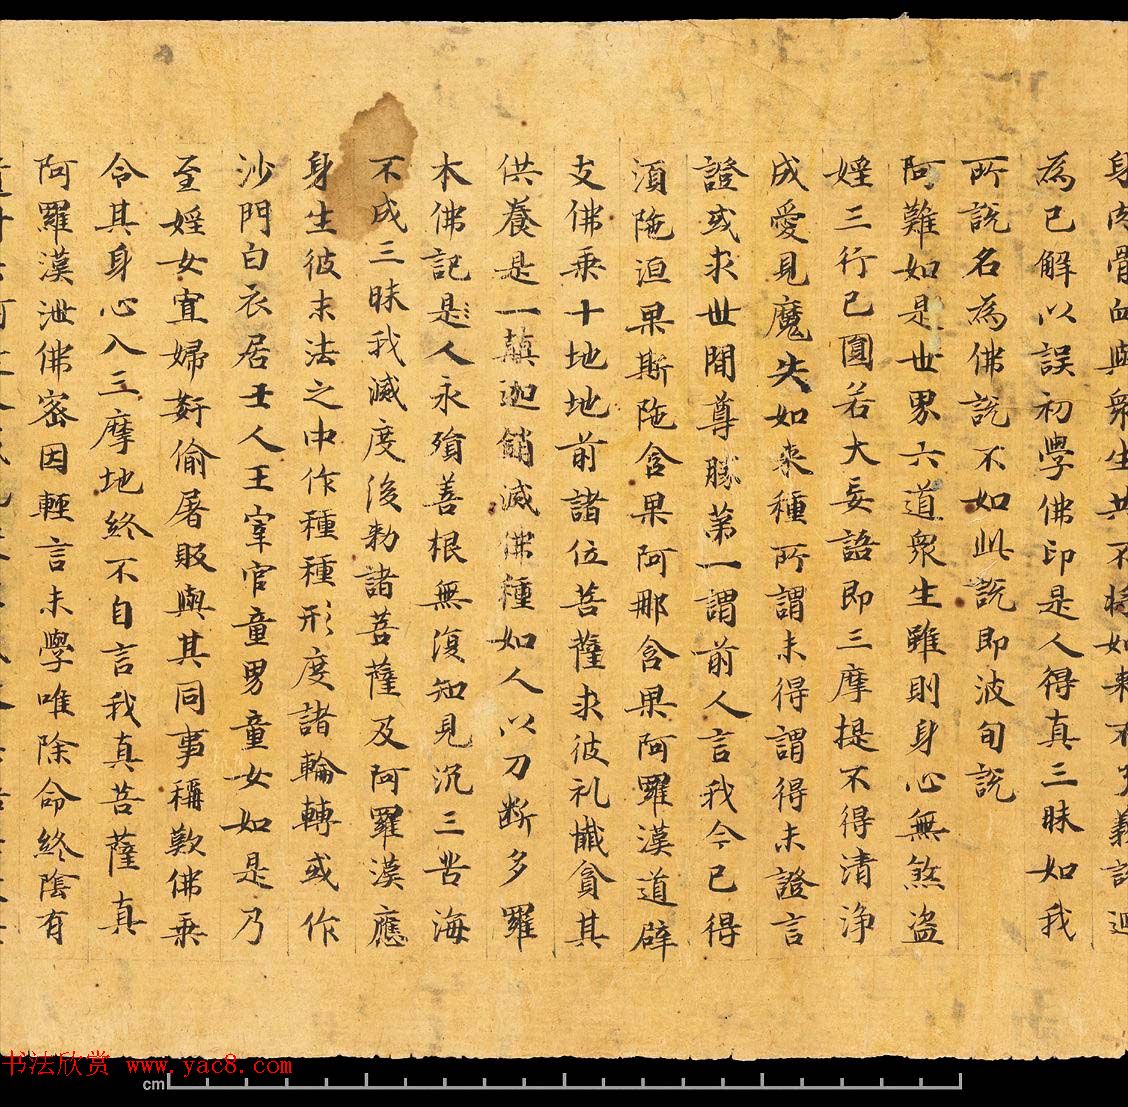 身肉骨血與衆生共不將如來不了義說迴
為已解以誤初學佛印是人得真三昧如我
所說名為佛說不如此說即波旬說
阿難如是世界六道衆生雖則身心無煞盗
婬三行已圓若大妄語即三摩提不得清淨
成愛見魔失如来種所謂未得謂得未證言
證或求世間尊勝第一謂前人言我今已得
湏陁洹果斯陁含果阿那含果阿羅漢道辟
支佛乘十地地前諸位菩薩求彼礼懺貪其
供養是一蔰迦銷滅佛種如人以刀断多羅
木佛記是人永殞善根無復知見沉三苦海
不成三昧我滅度後勑諸菩薩及阿羅漢應
身生彼末法之中作種種形度諸輪轉或作
沙門白衣居士人王宰官童男童女如是乃
至婬女寡婦姧偷屠販與其同事稱歎佛乘
令其身心入三摩地終不自言我真菩薩真
阿羅漢泄佛密因輕言未學唯除命終陰有
书法欣赏 www.yac8.com
cm